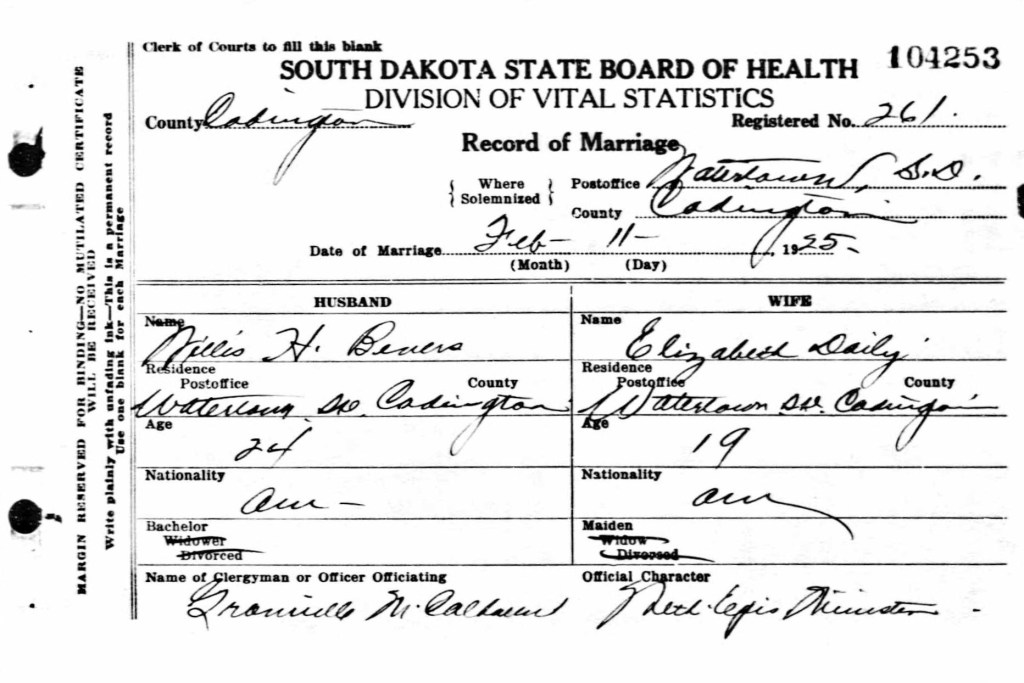 Clerk of Courts to fill this blank
104253
SOUTH DAKOTA STATE BOARD OF HEALTH
DIVISION OF VITAL STATISTICS
County Codington
Registered No. 261.
Record of Marriage
Where Solemnized
Postoffice Watertown, S.D.
County Codington
Date of Marriage Feb- 11- , 1925-
(Month) (Day)
HUSBAND WIFE
Name Name
Willis H. Bevers Elizabeth Daily
Residence Residence
Postoffice County Postoffice County
Watertown SD. Codington Watertown SD. Codington
Age Age
24 19
Nationality Nationality
am- am
Bachelor Maiden
Widower Widow
Divorced Divorced
Name of Clergyman or Officer Officiating Official Character
Granville M. Calhoun Meth. Epis Minister -
MARGIN RESERVED FOR BINDING—NO MUTILATED CERTIFICATE
WILL BE RECEIVED
Write plainly with unfading ink—This is a permanent record
Use one blank for each Marriage